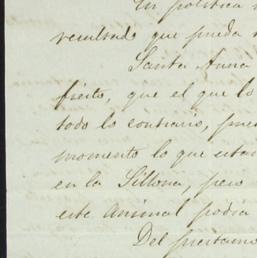 En politica
resultado que pueda
Santa Anna
fiesto, que el que lo
todo lo contrario, pues
momento lo que estan
en la Sillona, pero
este animal podia
Del prestamo